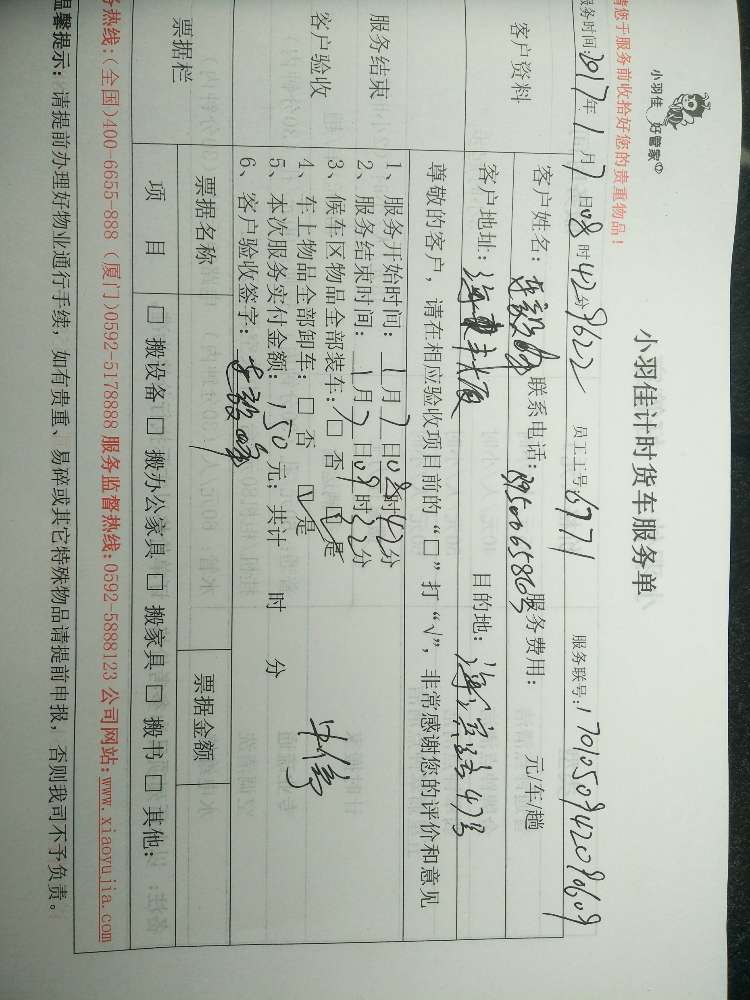 小羽佳 好管家
请您于服务前收拾好您的贵重物品！
小羽佳计时货车服务单
服务时间:2017年1月7日08时42分 9622 员工工号:6771 服务联号:1701050942080609
客户资料
客户姓名: 联系电话:13950065863 服务费用: 元/车/趟
客户地址: 目的地: 47号
尊敬的客户，请在相应验收项目前的“□”打“√”，非常感谢您的评价和意见
服务结束
客户验收
1、服务开始时间: 1月7日08时42分
2、服务结束时间: 1月7日09时32分
3、候车区物品全部装车:□ 否 ☑是
4、车上物品全部卸车:□ 否 ☑是
5、本次服务实付金额: 150元; 共计 时 分
6、客户验收签字:
票据栏
票据名称 票据金额
项 目 □ 搬设备 □ 搬办公家具 □ 搬家具 □ 搬书 □ 其他:
务热线:(全国)400-6655-888 (厦门)0592-5178888 服务监督热线:0592-5888123 公司网站:www.xiaoyujia.com
温馨提示: 请提前办理好物业通行手续，如有贵重、易碎或其它特殊物品请提前申报，否则我司不予负责。